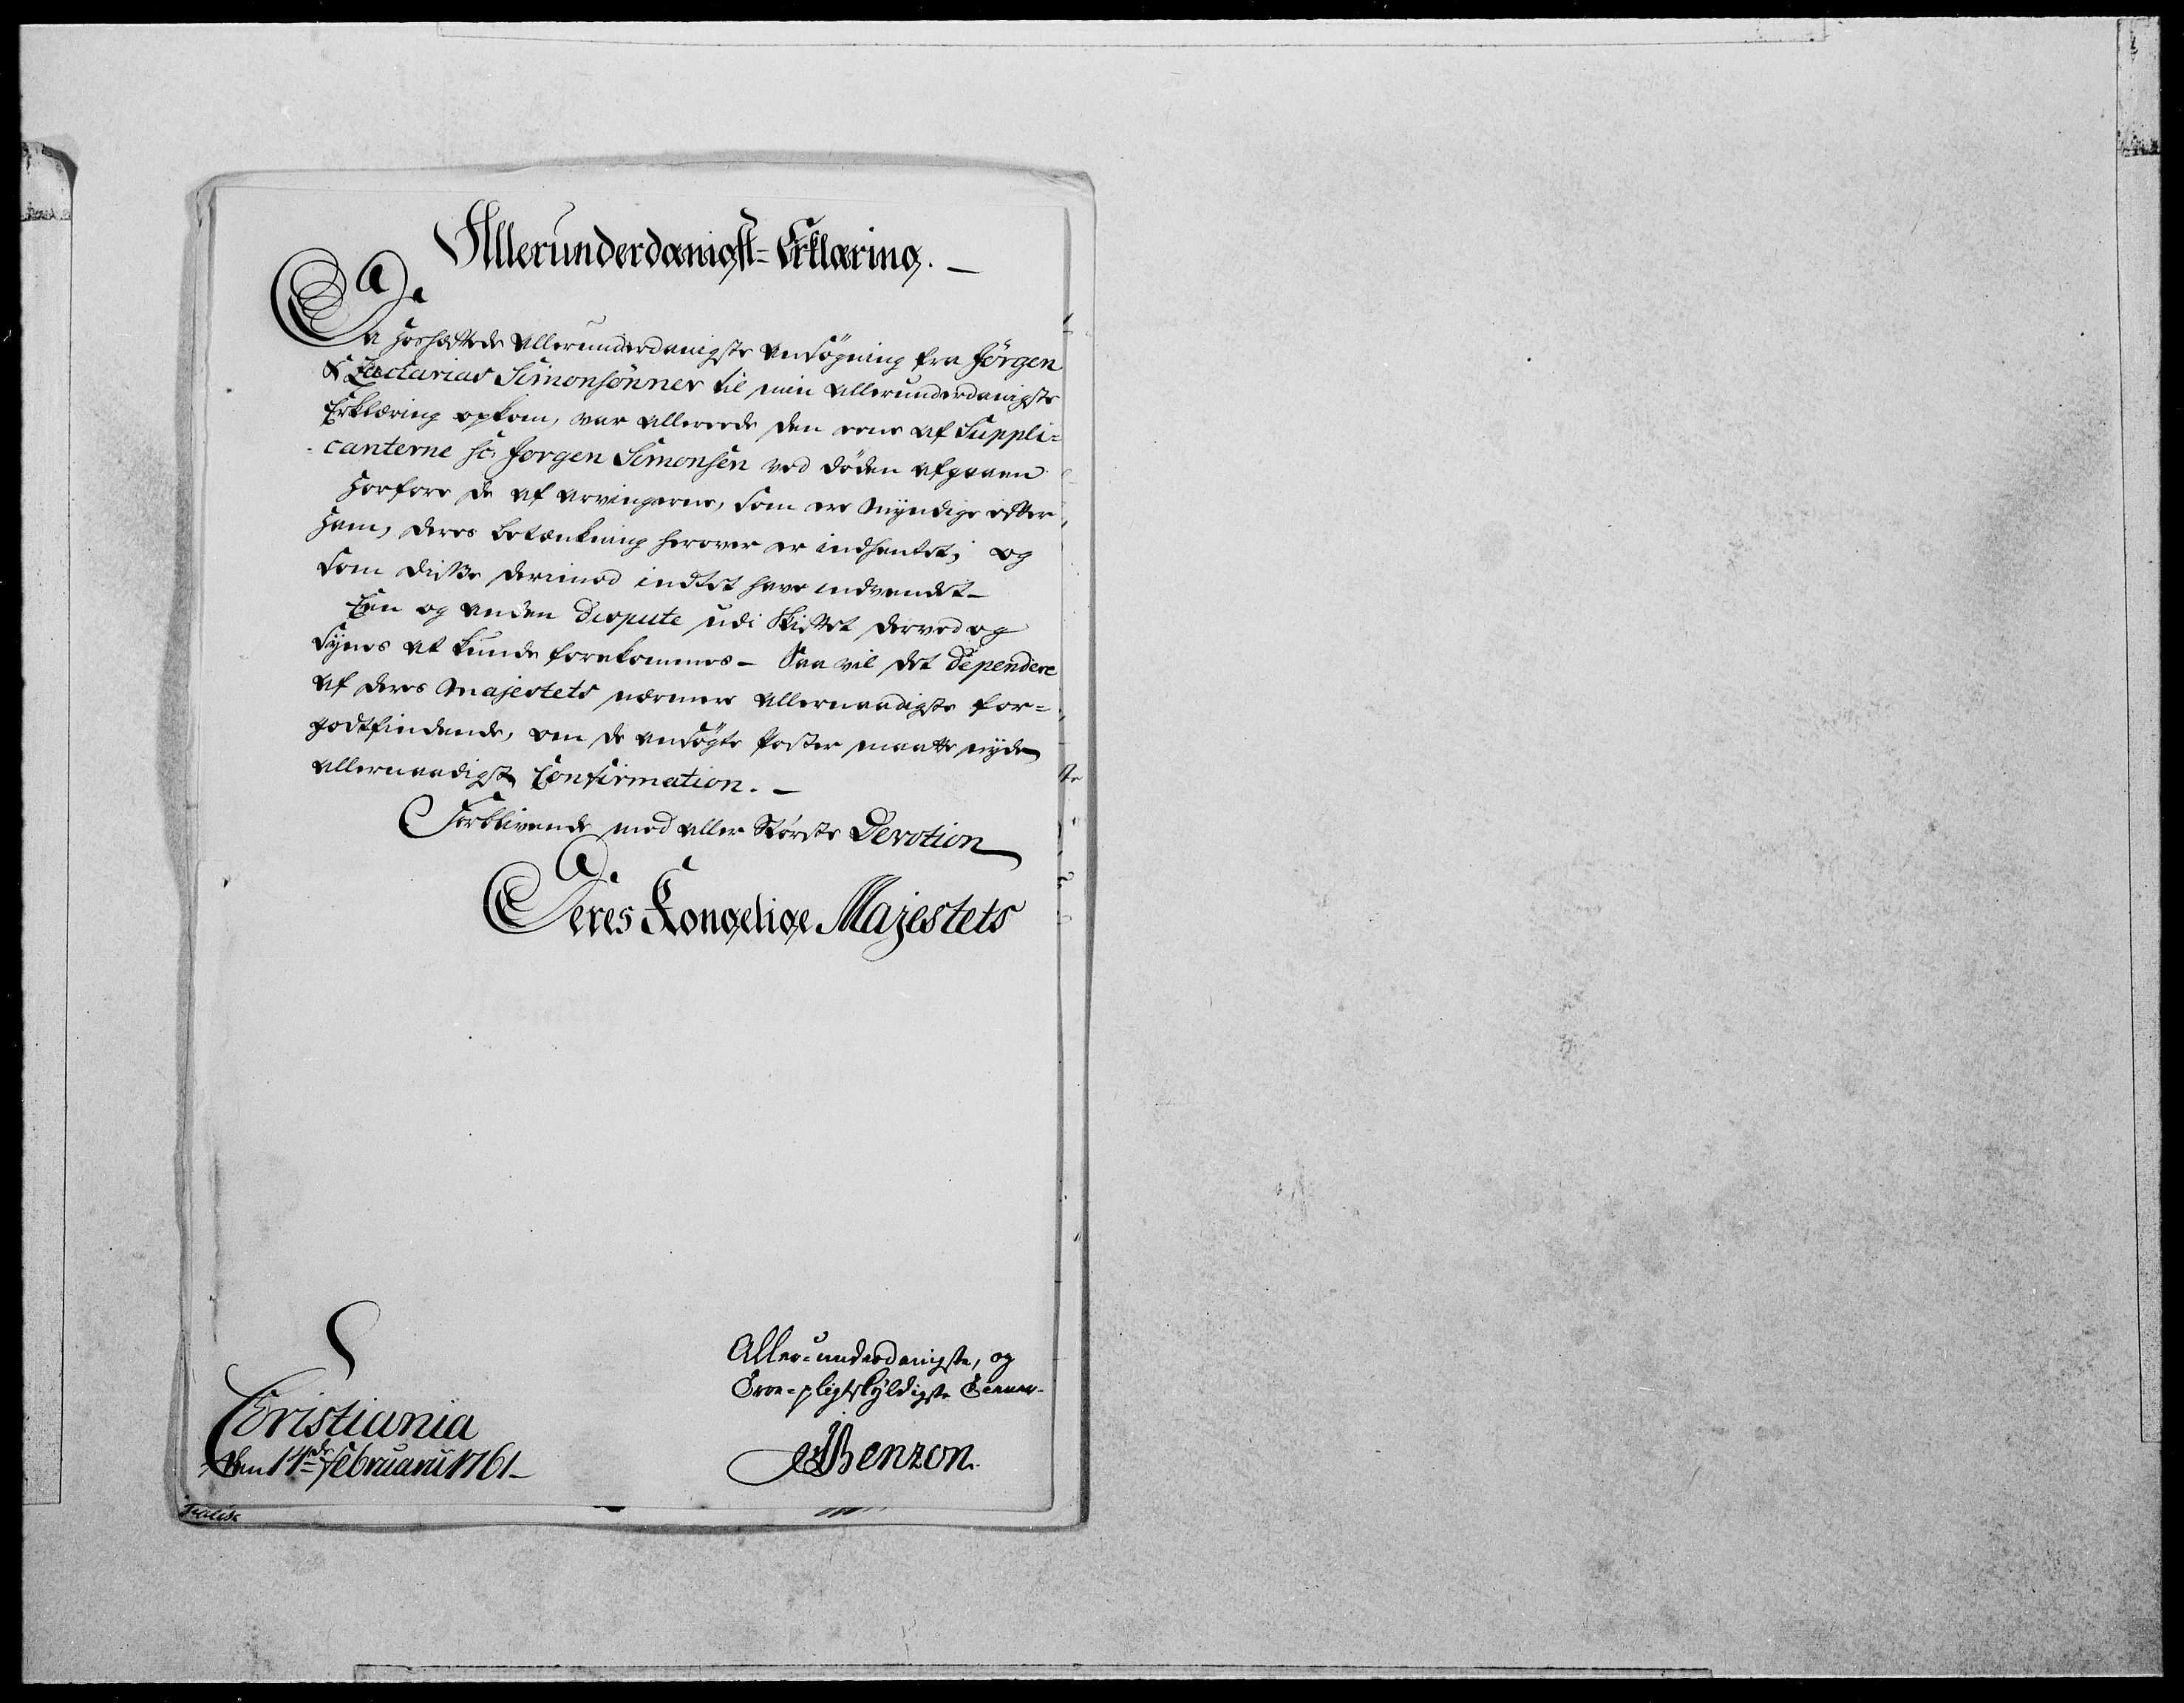 Allerunderdanigst-Erklæring.
Da hoshæftede allerunderdanigste ansögning fra Jörgen
& Zacharias Simonsönner til min allerunderdanigste
Erklæring opkom, var allereede den eene af Suppli=
canterne sc. Jorgen Simonsen ved döden afgaaen
Horfore de af arvingerne, som ere Myndige efter
ham, deres betænkning herover er indhentet; og
som disse derimod indtet have indvendt_
Een og anden Dispute udi Skiftet derved og
synes at kunde forekommes_ Saa vil det dependere
af deres Majestets nærmere allernaadigste for=
godtfindende, om de ansögte Poster maatte nyde
allernaadigst Confirmation._
Forblivende med aller Störste Devotion
Deres Kongelige Majestets
Christiania
den 14de Februarii 1761_
Aller=underdanigste, og
Troe=pligtskyldigste Tienner
Benzon.